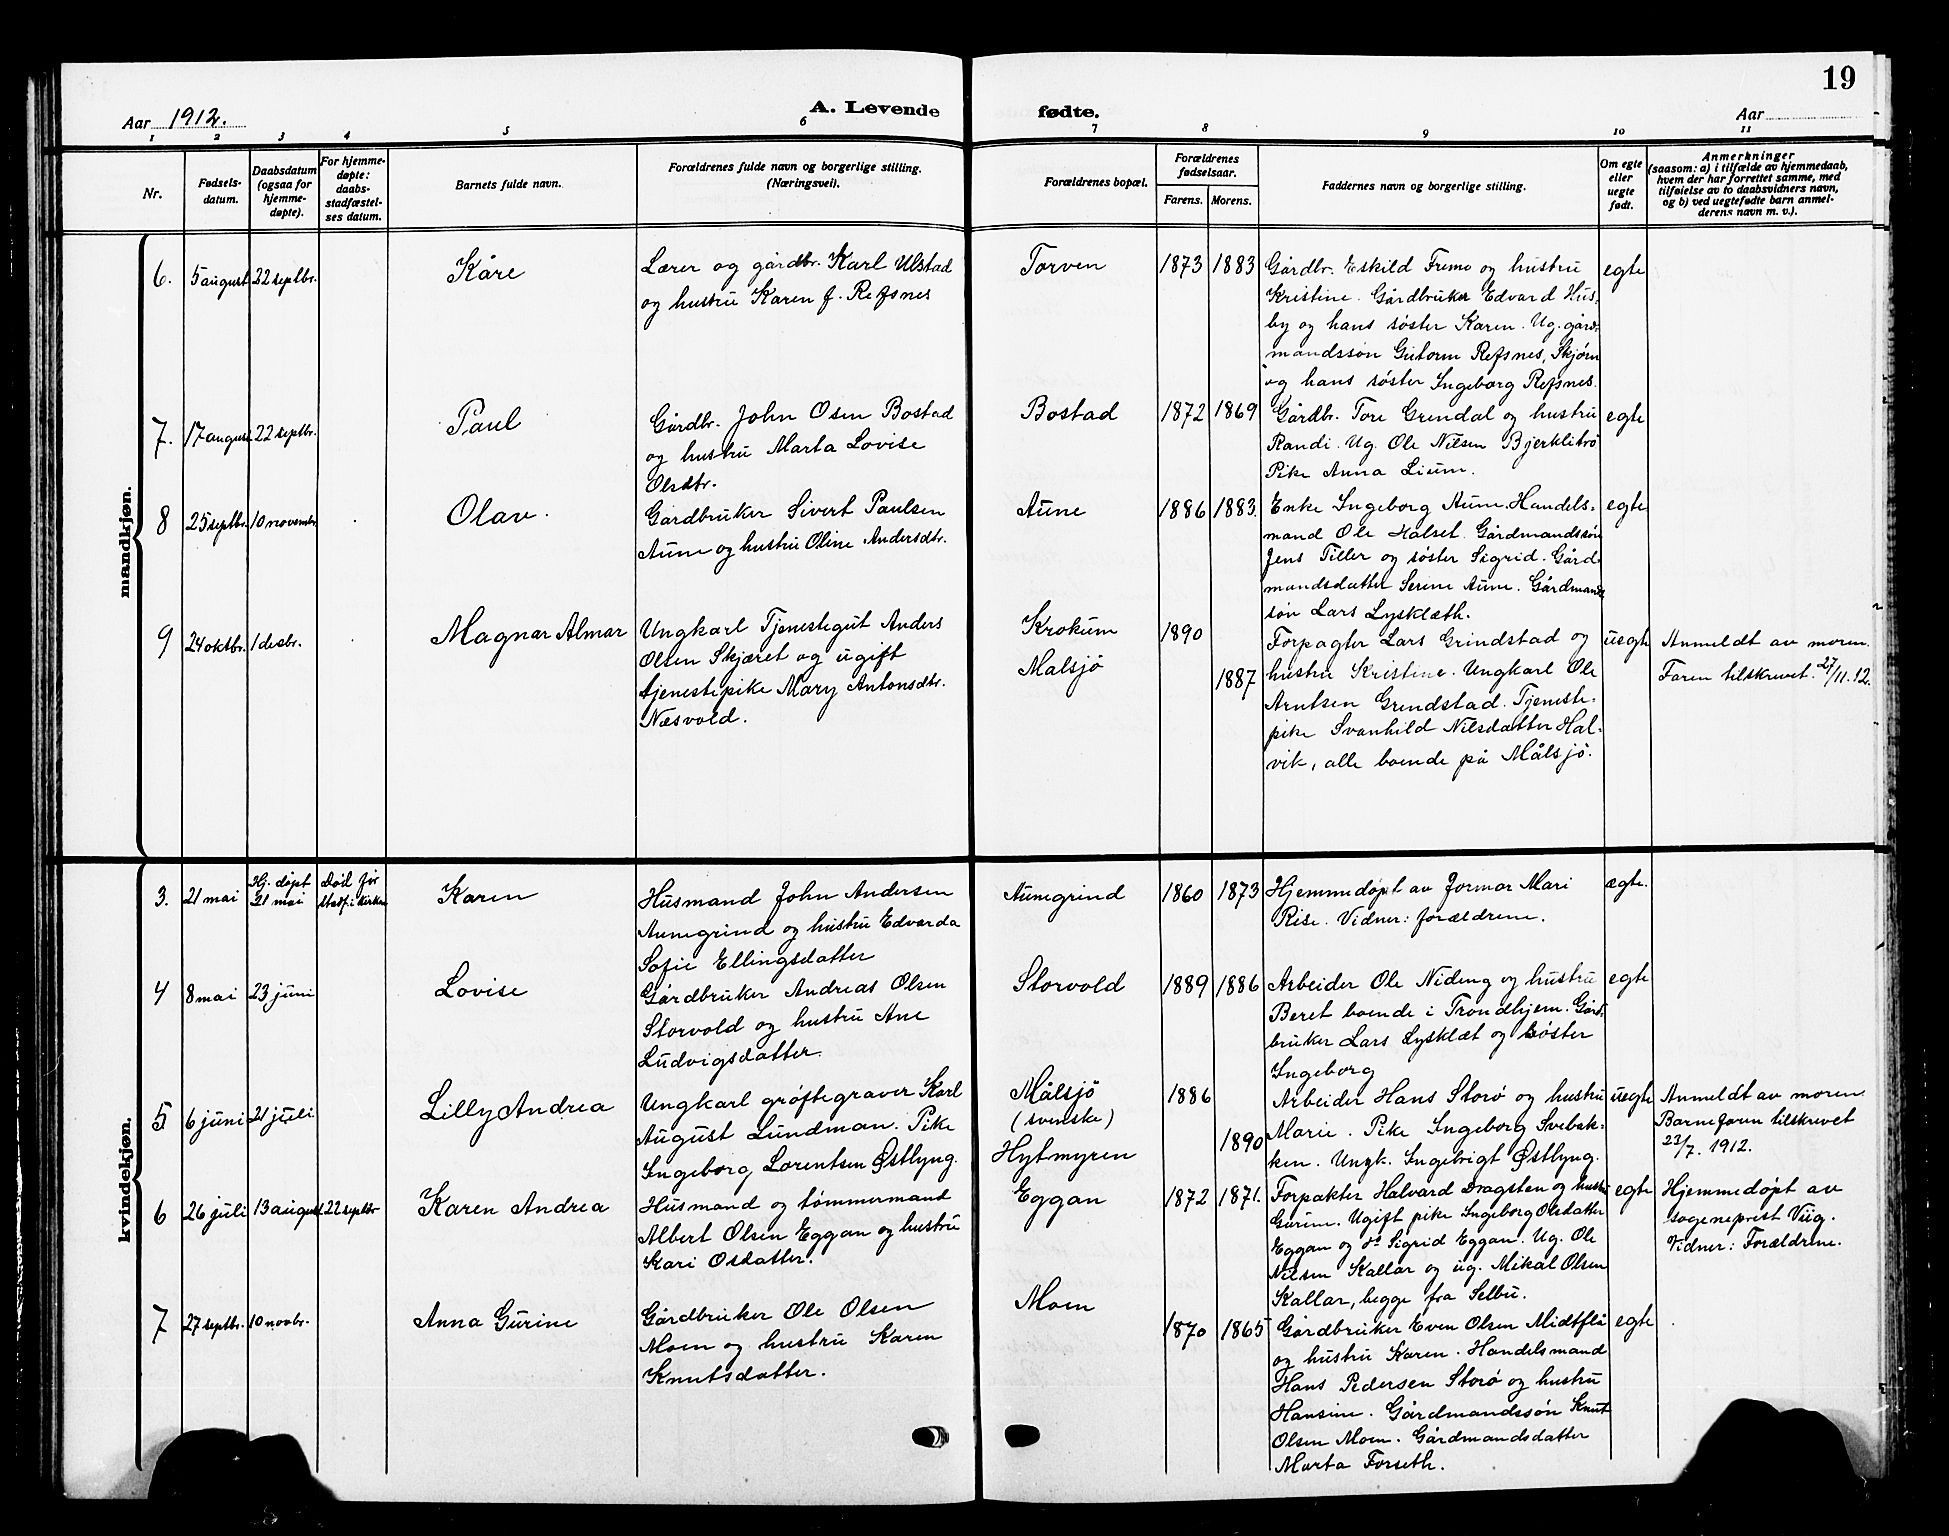 19
Aar 1912.
A. Levende
fødte.
Aar
1 2 3 4 5 6 7 8 9 10 11
Nr.
Fødsels-
datum.
Daabsdatum
(ogsaa for
hjemme-
døpte).
For hjemme-
døpte:
daabs-
stadfæstel-
ses datum.
Barnets fulde navn.
Forældrenes fulde navn og borgerlige stilling.
(Næringsvei).
Forældrenes bopæl.
Forældrenes
fødselsaar.
Farens. Morens.
Faddernes navn og borgerlige stilling.
Om egte
eller
uegte
født.
Anmerkninger
(saasom: a) i tilfælde av hjemmedaab,
hvem der har forrettet samme, med
tilføielse av to daabsvidners navn,
og b) ved uegtefødte barn anmel-
derens navn m. v.).
mandkjøn.
6. 5 august 22 septbr. Kåre
Lærer og gårdbr. Karl Ulstad
og hustru Karen f. Refsnes
Torven 1873 1883
Gårdbr. Eskild Fremo og hustru
Kristine. Gårdbruker Edvard Hus-
by og hans søster Karen. Ug. gård-
mandssøn Gutorm Refsnes, Skjørn
og hans søster Ingeborg Refsnes.
egte
7. 17 august 22 septbr. Paul
Gårdbr. John Osen Bostad
og hustru Marta Lovise
Olsdtr.
Bostad 1872 1869
Gårdbr. Tore Grendal og hustru
Randi. Ug. Ole Nilsen Bjerklitrø
Pike Anna Lium.
egte
8 25 septbr. 10 novembr. Olav.
Gårdbruker Sivert Paulsen
Aune og hustru Oline Andersdtr.
Aune 1886 1883.
Enke Ingeborg Aune. Handels-
mand Ole Halset. Gårdmandssøn
Jens Tiller og søster Sigrid. Gård-
mandsdatter Serine Aune. Gårdmands
søn Lars Lysklæth.
egte
9 24 oktbr. 1 desbr. Magnar Almar
Ungkarl Tjenestegut Anders
Olsen Skjæret og ugift
tjenestepike Mary Antonsdtr.
Næsvold.
Krokum 1890
Malsjö 1887
Forpagter Lars Grindstad og
hustru Kristine. Ungkarl Ole
Arntsen Grendstad. Tjeneste-
pike Svanhild Nilsdatter Hal-
vik, alle boende på Målsjö.
uegte
Anmeldt av moren.
Faren tilskrevet 27/11.12.
kvindekjøn.
3. 21 mai
Hj. døpt
21 mai
Död før
stadf. i kirken
Karen
Husmand John Andersen
Aunegrind og hustru Edvarda
Sofie Ellingsdatter
Aunegrind 1860 1873
Hjemmedøpt av Jormor Mari
Rise. Vidner: forældrene.
ægte.
4 8 mai 23 juni Lovise
Gårdbruker Andreas Olsen
Storvold og hustru Ane
Ludvigsdatter.
Storvold 1889 1886
Arbeider Ole Nideng og hustru
Beret boende i Trondhjem. Gård-
bruker Lars Lysklæt og søster
Ingeborg
egte
5 6 juni 21 juli Lilly Andrea
Ungkarl grøftegraver Karl
August Lundman. Pike
Ingeborg Lorentsen Østlyng.
Målsjö 1886
(svenske)
Hytmyren 1890
Arbeider Hans Storø og hustru
Marie. Pike Ingeborg Svebak-
ken. Ungk. Ingebrigt Østlyng.
uegte
Anmeldt av moren.
Barnefaren tilskrevet
23/7. 1912.
6 26 juli 13 august 22 septbr Karen Andrea
Husmand og tømmermand
Albert Olsen Eggan og hustru
Kari Osdatter.
Eggan 1872 1871.
Forpakter Halvard Dragsten og hustru
Gurine. Ugift pike Ingeborg Olsdatter
Eggan og do Sigrid Eggan. Ug. Ole
Nilsen Kallar og ug. Mikal Olsen
Kallar, begge fra Selbu.
egte
Hjemmedøpt av
sogneprest Viig.
Vidner: Forældrene.
7 27 septbr. 10 novbr. Anna Gurine
Gårdbruker Ole Olsen
Moen og hustru Karen
Knutsdatter.
Moen 1870 1865
Gårdbruker Even Olsen Midtfla
og hustru Karen. Handelsmand
Hans Pedersen Storø og hustru
Hansine. Gårdmandssön Knut
Olsen Moen. Gårdmandsdatter
Marta Forseth.
egte